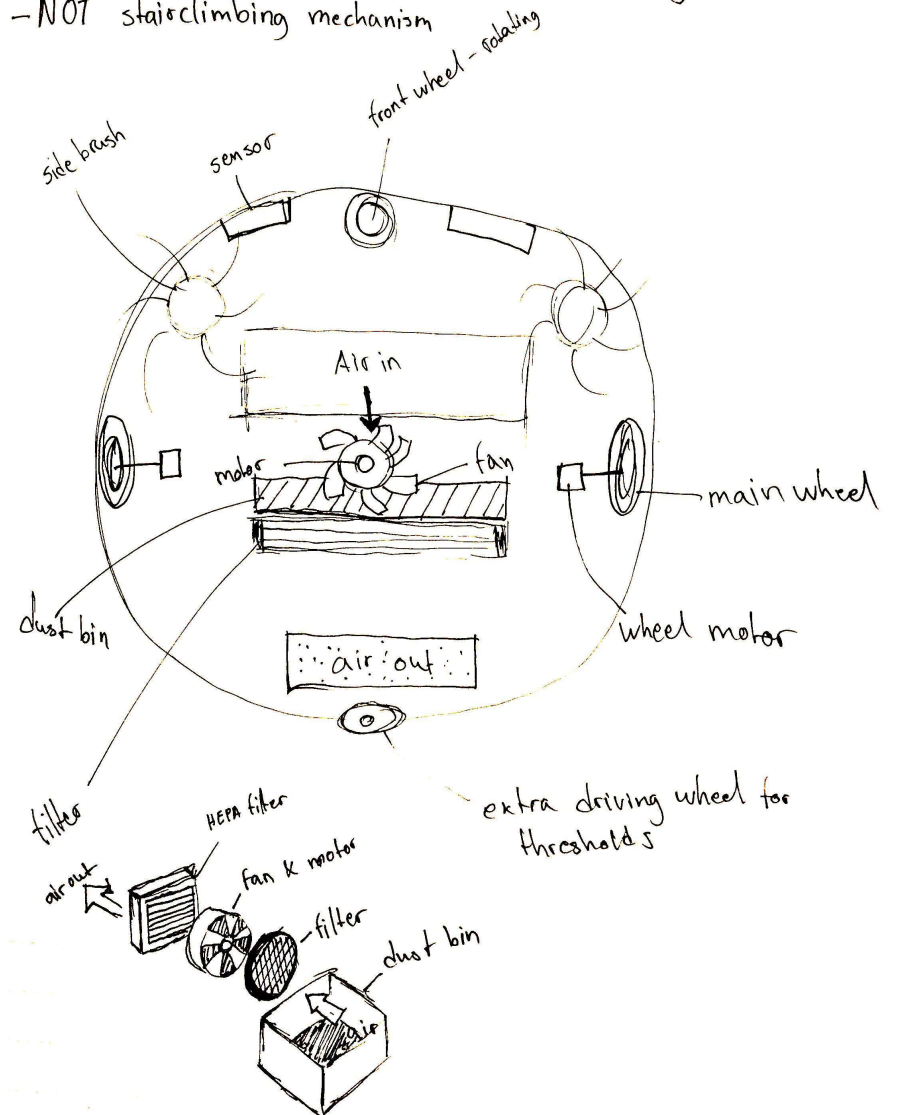 - NOT stairclimbing mechanism
front wheel - rotating
side brush
sensor
Air in
motor
fan
main wheel
dust bin
wheel motor
air out
filter
extra driving wheel for
thresholds
HEPA filter
air out
fan & motor
filter
dust bin
air